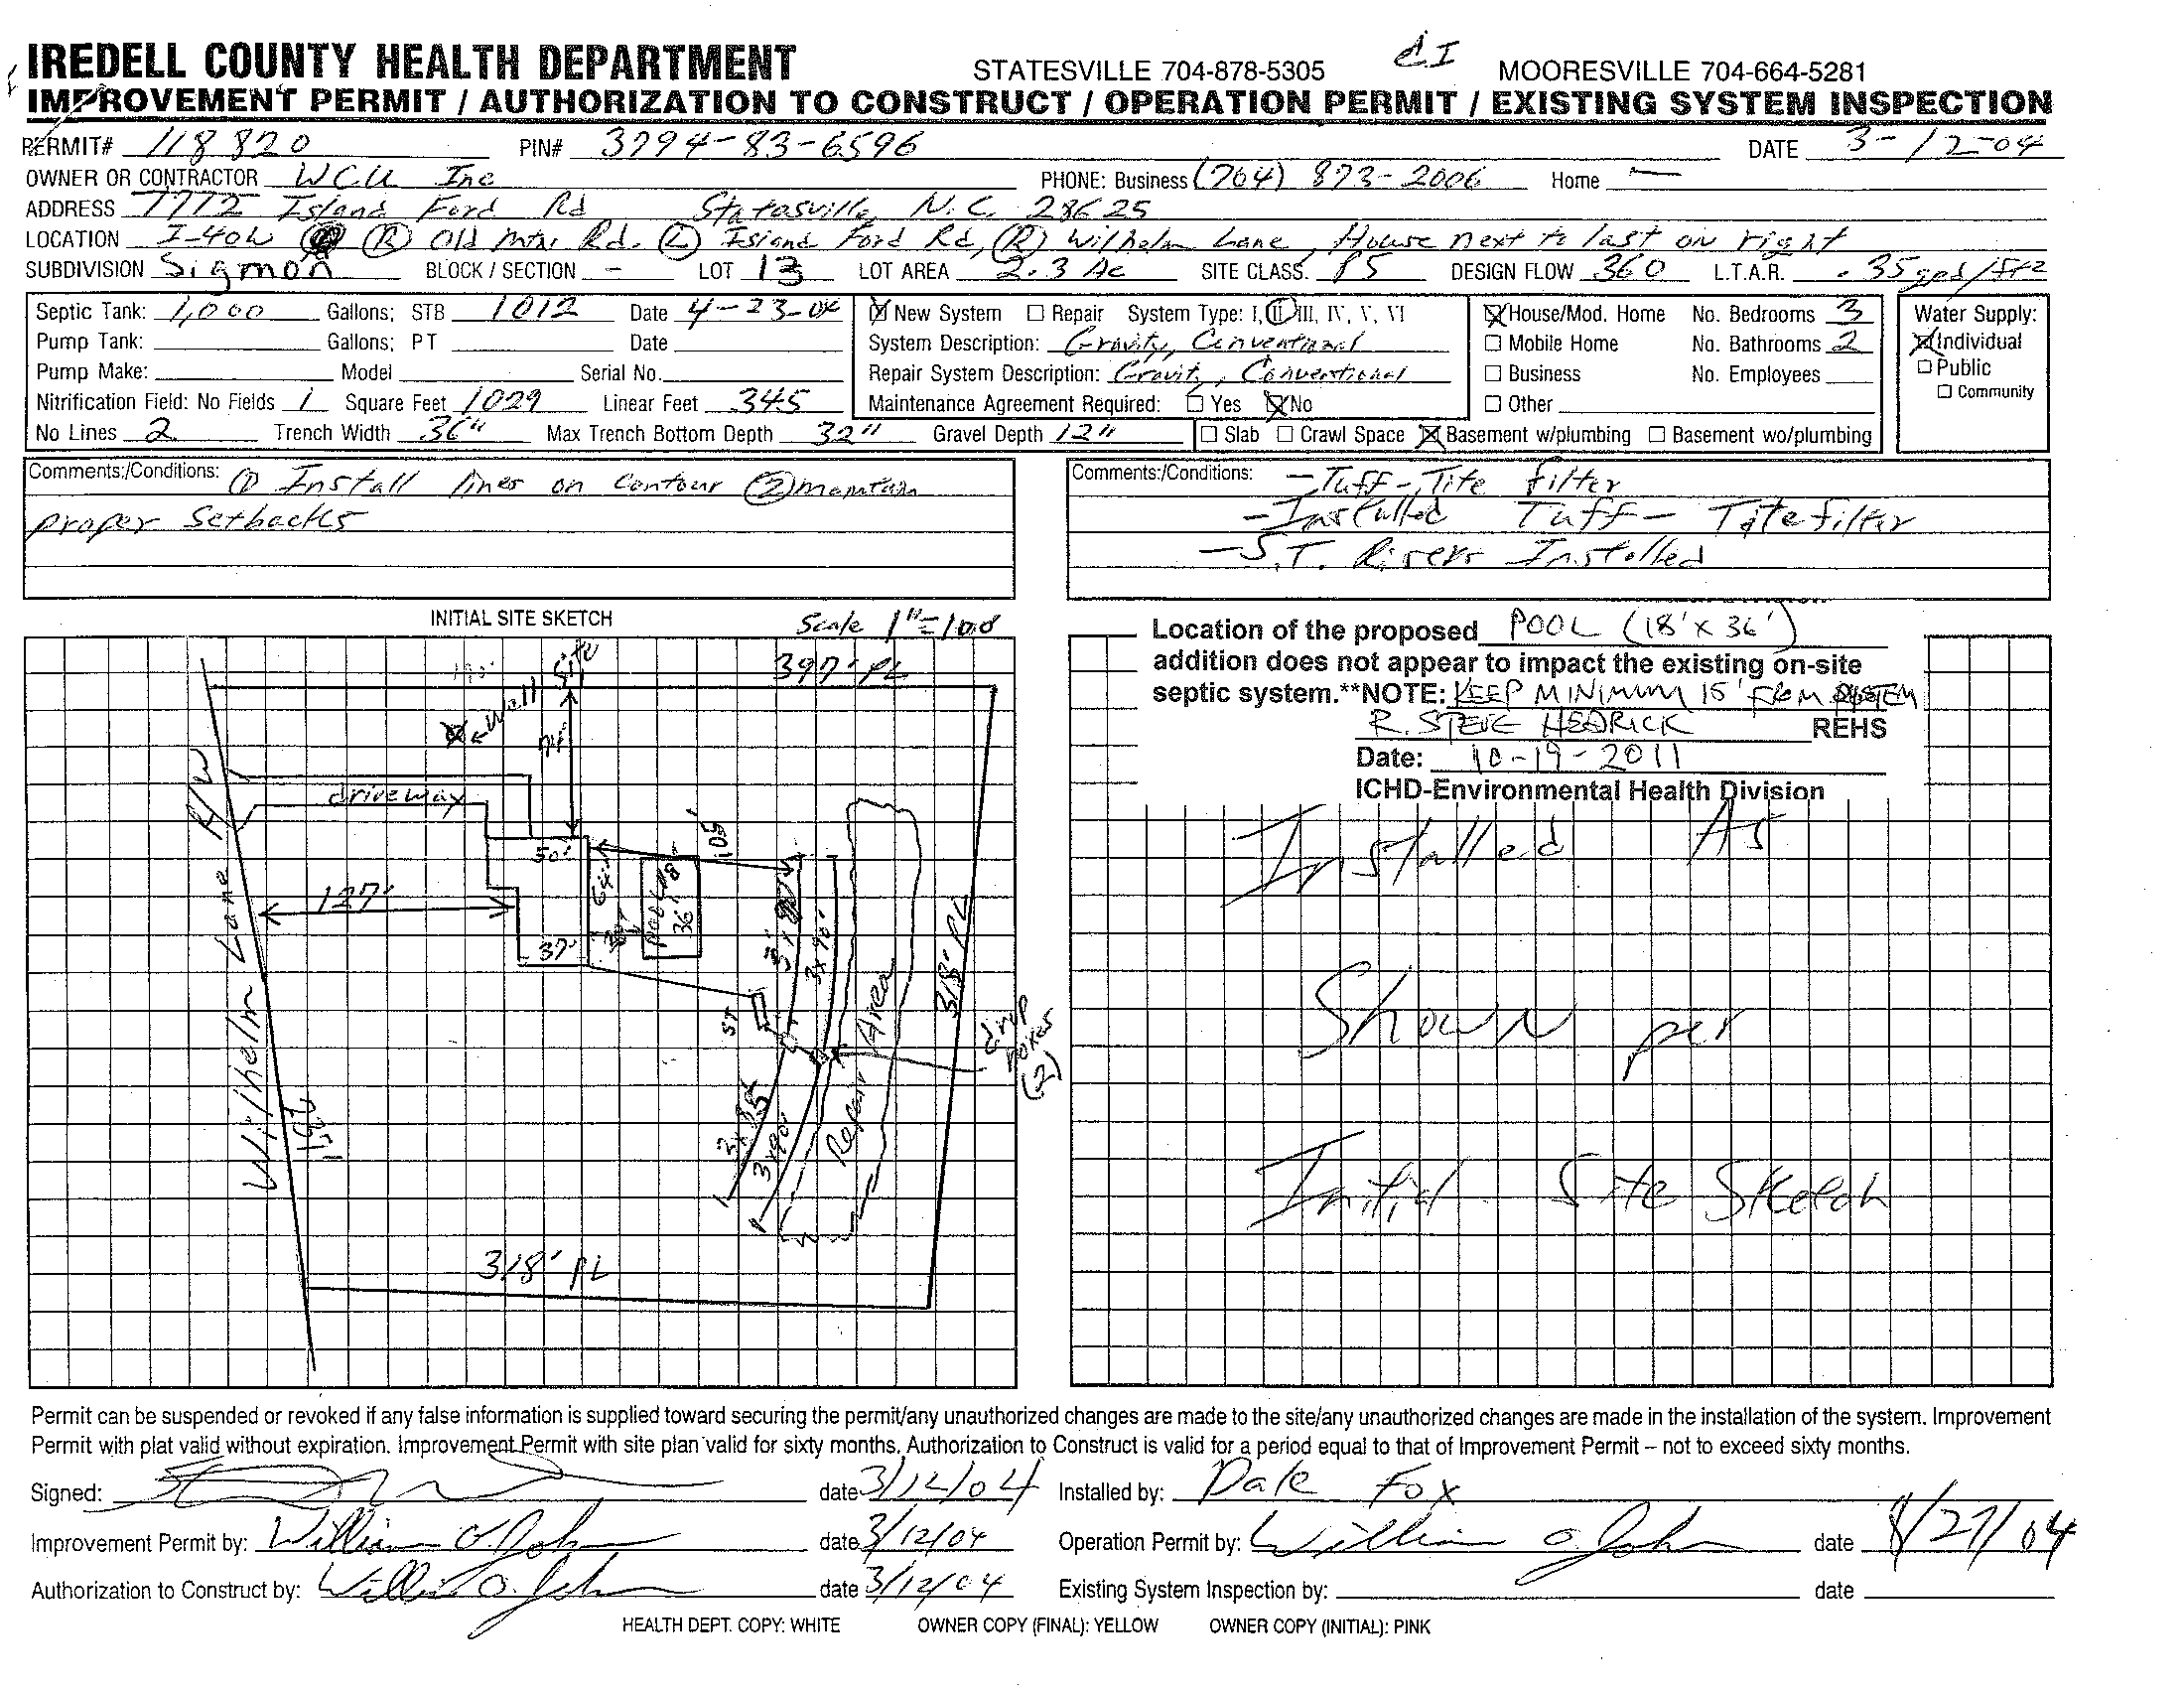 IREDELL COUNTY HEALTH DEPARTMENT STATESVILLE 704-878-5305 MOORESVILLE 704-664-5281
IMPROVEMENT PERMIT / AUTHORIZATION TO CONSTRUCT / OPERATION PERMIT / EXISTING SYSTEM INSPECTION
PERMIT# 118820 PIN# 3794-83-6596 DATE 3-12-04
OWNER OR CONTRACTOR WCU Inc PHONE: Business (704) 873-2006 Home —
ADDRESS 7772 Island Ford Rd Statesville N.C. 28625
LOCATION I-40W (R) Old Mtn. Rd. (L) Island Ford Rd, (R) Wilhelm Lane, House next to last on right
SUBDIVISION Sigmon BLOCK / SECTION - LOT 13 LOT AREA 2.3 Ac SITE CLASS. PS DESIGN FLOW 360 L.T.A.R. .35 gpd/ft2
Septic Tank: 1,000 Gallons; STB 1012 Date 4-23-04 New System Repair System Type: I, II, III, IV, V, VI House/Mod. Home No. Bedrooms 3 Water Supply:
Pump Tank: Gallons; PT Date System Description: Gravity, Conventional Mobile Home No. Bathrooms 2 Individual
Pump Make: Model Serial No. Repair System Description: Gravity, Conventional Business No. Employees Public
Nitrification Field: No Fields 1 Square Feet 1029 Linear Feet 345 Maintenance Agreement Required: Yes No Other Community
No Lines 2 Trench Width 36" Max Trench Bottom Depth 32" Gravel Depth 12" Slab Crawl Space Basement w/plumbing Basement wo/plumbing
Comments:/Conditions: ① Install lines on contour ② maintain
proper Setbacks
Comments:/Conditions: - Tuff-Tite filter
- Installed Tuff-Tite filter
- S.T. Risers Installed
INITIAL SITE SKETCH Scale 1"=100
397' PL
Well
driveway
R/W
50'
105'
64'
127'
37'
Pool
36
3x90'
ST
318' PL
drop
boxes
(2)
Repair Area
3x85
3x90'
Wilhelm Lane
318' PL
Location of the proposed POOL (18' x 36')
addition does not appear to impact the existing on-site
septic system.**NOTE: KEEP MINIMUM 15' FROM SYSTEM
R. STEVE HEDRICK REHS
Date: 10-19-2011
ICHD-Environmental Health Division
Installed As
Shown per
Initial Site Sketch
Permit can be suspended or revoked if any false information is supplied toward securing the permit/any unauthorized changes are made to the site/any unauthorized changes are made in the installation of the system. Improvement
Permit with plat valid without expiration. Improvement Permit with site plan valid for sixty months. Authorization to Construct is valid for a period equal to that of Improvement Permit – not to exceed sixty months.
Signed: date 3/12/04 Installed by: Dale Fox
Improvement Permit by: William O. John date 3/12/04 Operation Permit by: William O. John date 8/27/04
Authorization to Construct by: William O. John date 3/12/04 Existing System Inspection by: date
HEALTH DEPT. COPY: WHITE OWNER COPY (FINAL): YELLOW OWNER COPY (INITIAL): PINK